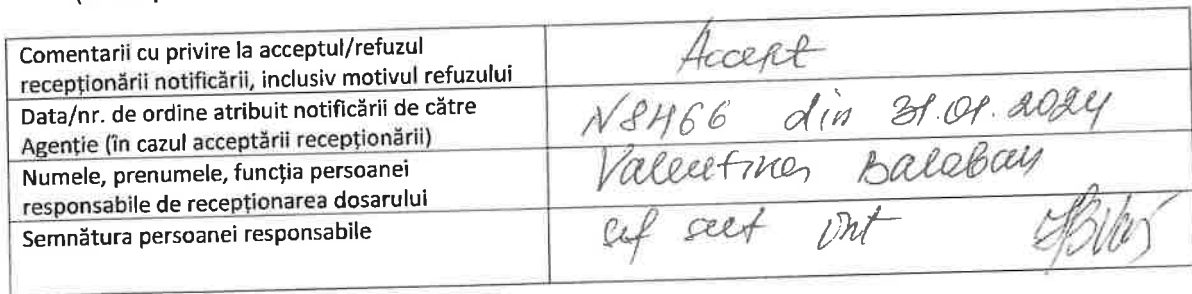 Comentarii cu privire la acceptul/refuzul
recepționării notificării, inclusiv motivul refuzului
Accept
Data/nr. de ordine atribuit notificării de către
Agenție (în cazul acceptării recepționării)
N8466 din 31.01.2024
Numele, prenumele, funcția persoanei
responsabile de recepționarea dosarului
Valentina Balaban
Semnătura persoanei responsabile
șef sect